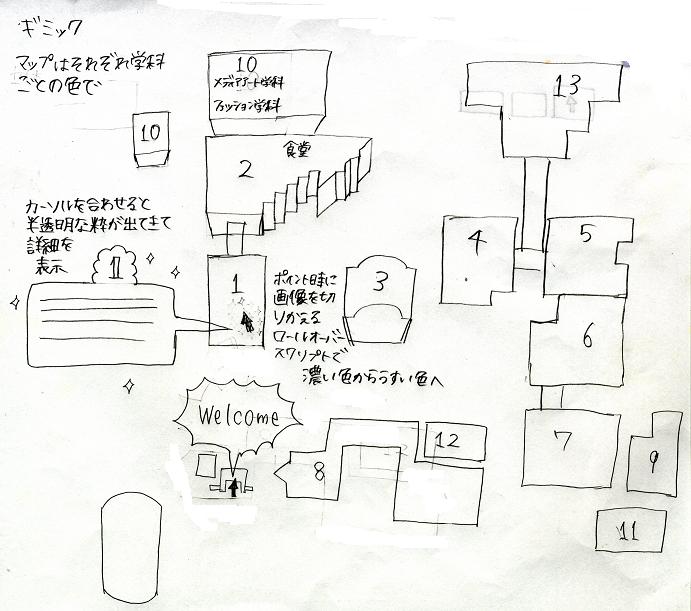 ギミック
マップはそれぞれ学科
ごとの色で
10
10
メディアアート学科
ファッション学科
食堂
2
13
カーソルを合わせると
半透明な粋が出てきて
詳細を
表示
1
1
ポイント時に
画像を切
りかえる
ロールオーバー
スクリプトで
濃い色からうすい色へ
3
4
5
6
7
Welcome
8
12
9
11